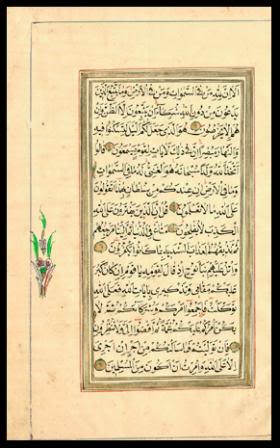 الا ان لله من في السموات ومن في الارض وما يتبع الذين
يدعون من دون الله شركاء ان يتبعون الا الظن وان
هم الا يخرصون هو الذي جعل لكم اليل لتسكنوا فيه
والنهار مبصرا ان في ذلك لايات لقوم يسمعون قالوا
اتخذ الله ولدا سبحانه هو الغني له ما في السموات
وما في الارض ان عندكم من سلطان بهذا اتقولون
على الله ما لا تعلمون قل ان الذين يفترون على الله
الكذب لا يفلحون متاع في الدنيا ثم الينا مرجعهم
ثم نذيقهم العذاب الشديد بما كانوا يكفرون
واتل عليهم نبا نوح اذ قال لقومه يا قوم ان كان كبر
عليكم مقامي وتذكيري بايات الله فعلى الله
توكلت فاجمعوا امركم وشركاءكم ثم لا
يكن امركم عليكم غمة ثم اقضوا الي ولا تنظرون
فان توليتم فما سالتكم من اجر ان اجري
الا على الله وامرت ان اكون من المسلمين